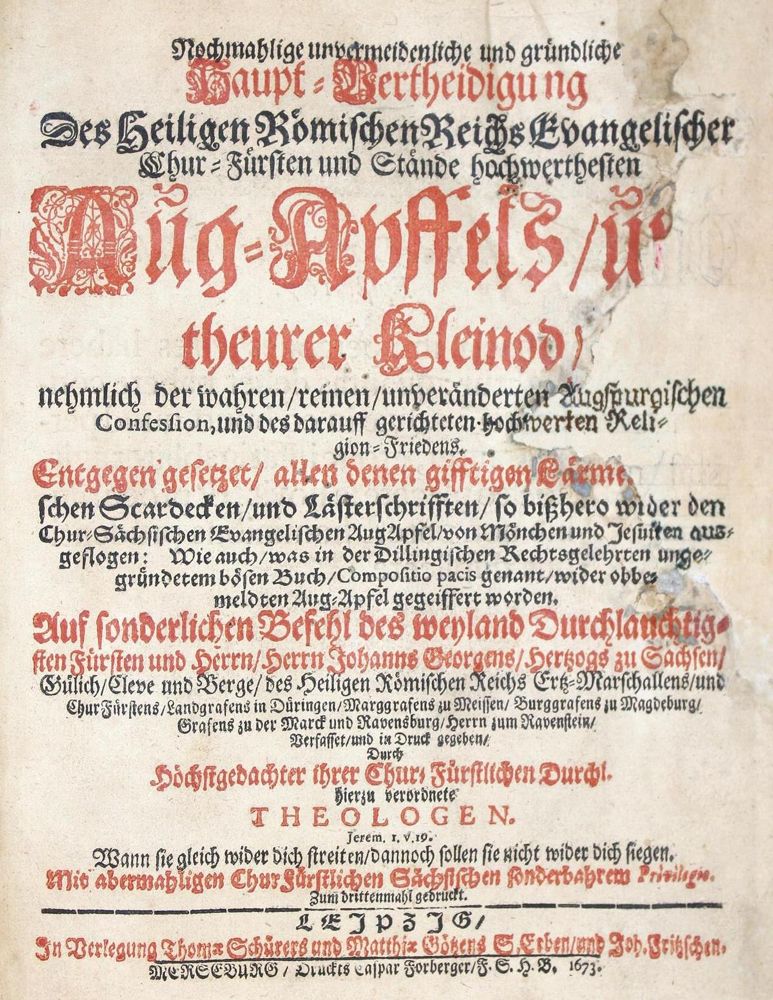 Nochmahlige unvermeidenliche und gründliche
Haupt-Vertheidigung
Des Heiligen Römischen Reichs Evangelischer
Chur-Fürsten und Stände hochwerthesten
Aŭg-Apffels/ uñ
theurer Kleinod/
nehmlich der wahren/reinen/unveränderten Augspurgischen
Confession, und des darauff gerichteten hochwerten Reli-
gion-Friedens.
Entgegen gesetzet/ allen denen gifftigen Lärmi-
schen Scardecken/und Lästerschrifften/ so bißhero wider den
Chur-Sächsischen Evangelischen AugApfel/von Mönchen und Jesuiten aus-
geflogen: Wie auch/was in der Dillingischen Rechtsgelehrten unge-
gründetem bösen Buch/Compositio pacis genant/wider obbe-
meldten Aug-Apfel gegeiffert worden.
Auf sonderlichen Befehl des weyland Durchlauchtig-
sten Fürsten und Herrn/Herrn Johanns Georgens/Hertzogs zu Sachsen/
Gülich/Cleve und Berge/des Heiligen Römischen Reichs Ertz-Marschallens/und
ChurFürstens/Landgrafens in Düringen/Marggrafens zu Meissen/ Burggrafens zu Magdeburg/
Grafens zu der Marck und Ravensburg/Herrn zum Ravenstein/
Verfasset/und in Druck gegeben/
Durch
Höchstgedachter ihrer Chur-Fürstlichen Durchl.
hierzu verordnete
THEOLOGEN.
Jerem. 1. v. 19.
Wann sie gleich wider dich streiten/dannoch sollen sie nicht wider dich siegen.
Mit abermahligen ChurFürstlichen Sächsischen sonderbahrem Privilegio.
Zum drittenmahl gedruckt.
LEIPZIG/
In Verlegung Thomæ Schürers und Matthiæ Götzens S. Erben/und Joh. Fritzschen.
MERSEBURG/ Druckts Caspar Forberger/F. S. H. B. 1673.